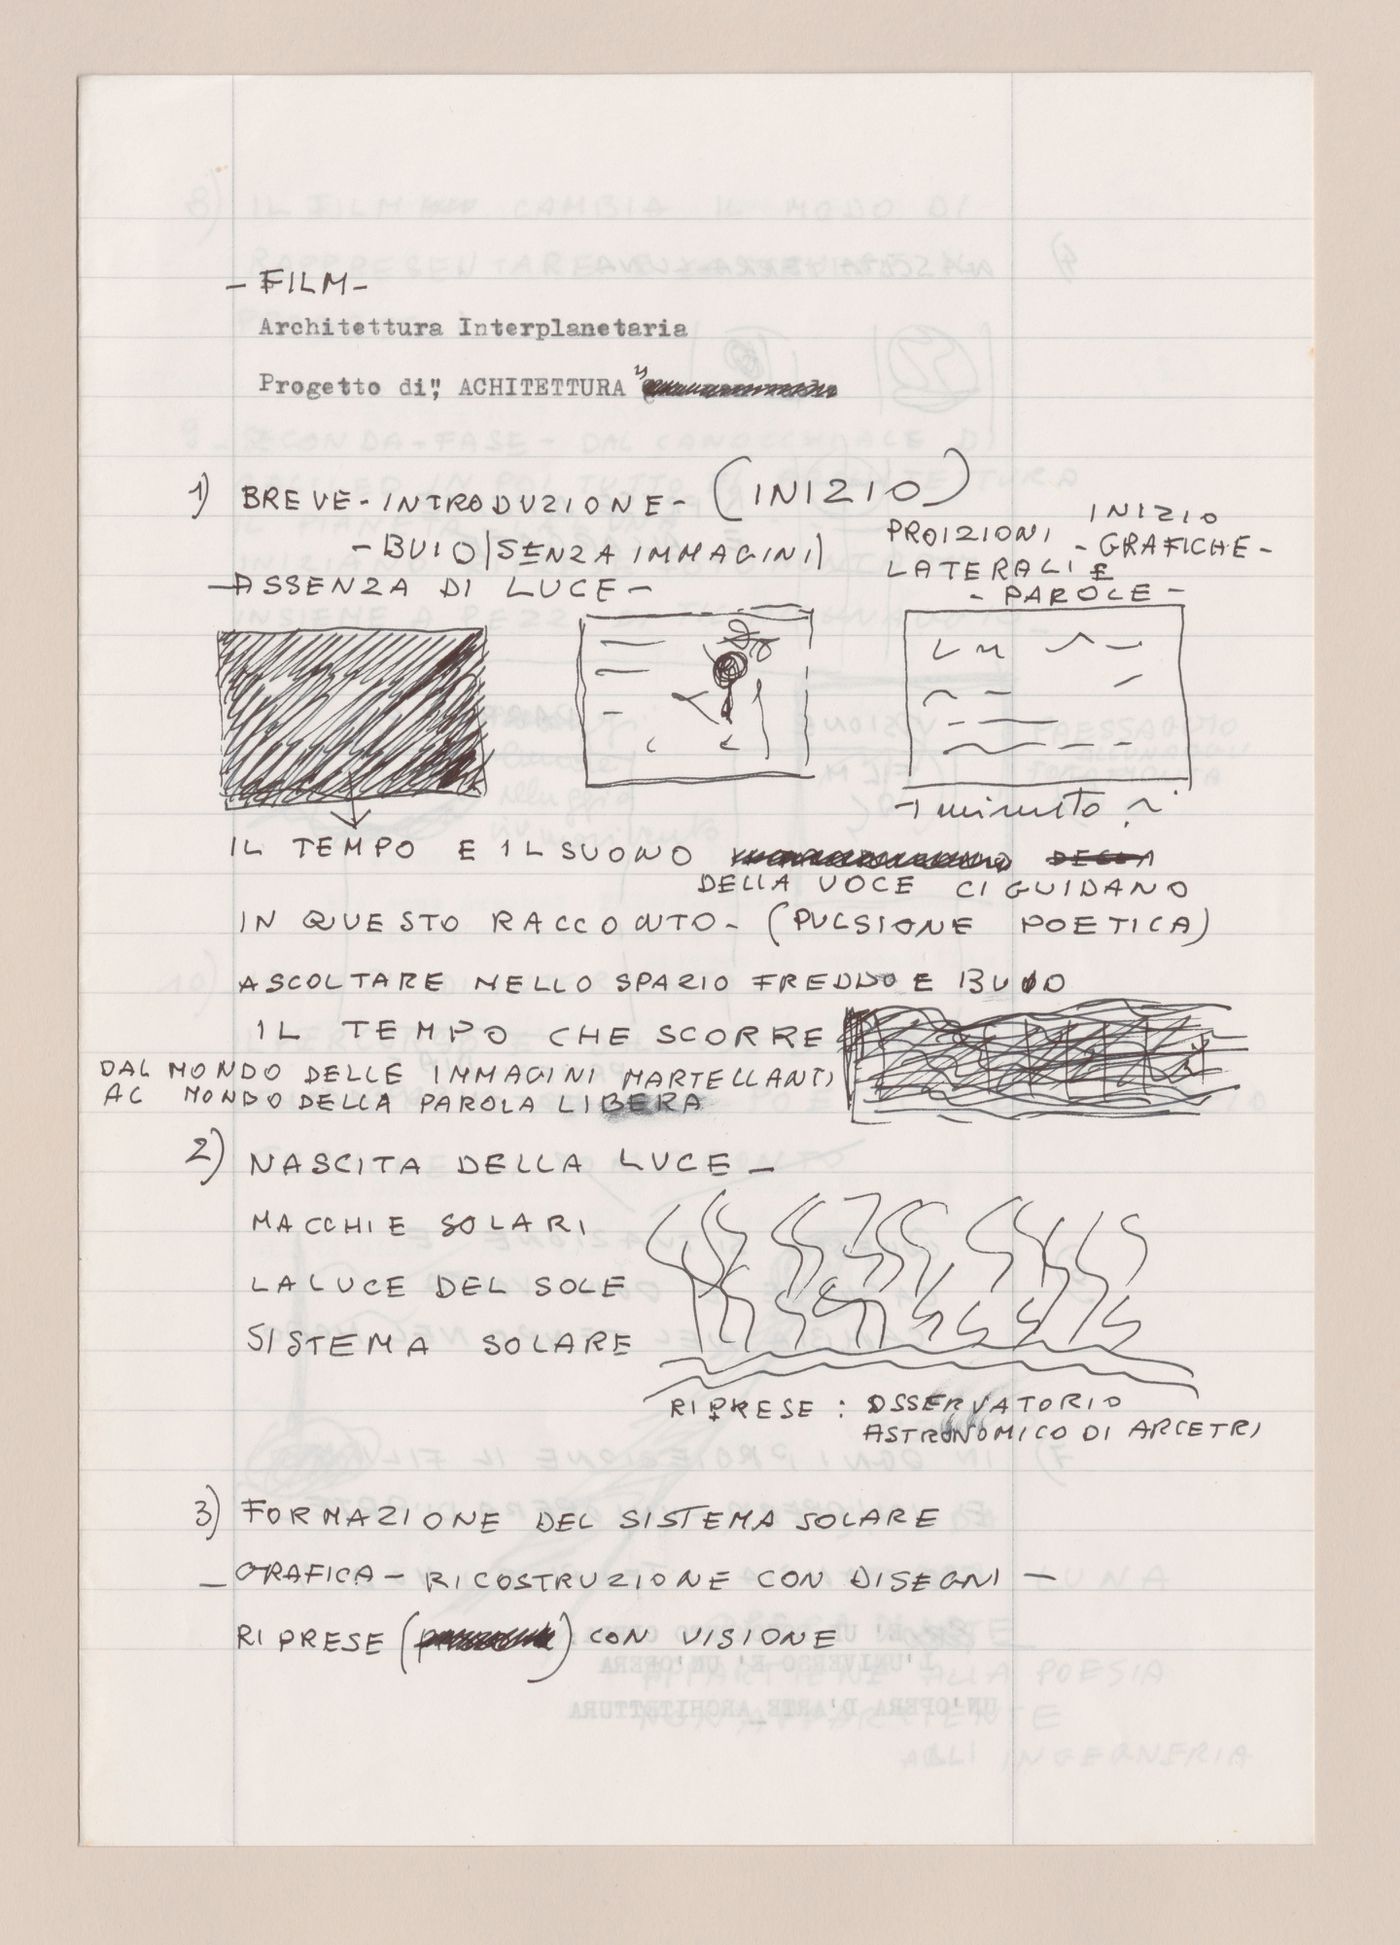 - FILM -
Architettura Interplanetaria
Progetto di", ACHITETTURA "
1) BREVE - INTRODUZIONE - (INIZIO)
- BUIO (SENZA IMMAGINI)
- ASSENZA DI LUCE -
INIZIO
PROIZIONI - GRAFICHE -
LATERALI E
- PAROLE -
1 minuto
IL TEMPO E IL SUONO DELLA
DELLA VOCE CI GUIDANO
IN QUESTO RACCONTO - (PULSIONE POETICA)
ASCOLTARE NELLO SPAZIO FREDDO E BUIO
IL TEMPO CHE SCORRE
DAL MONDO DELLE IMMAGINI MARTELLANTI
AL MONDO DELLA PAROLA LIBERA
2) NASCITA DELLA LUCE -
MACCHIE SOLARI
LA LUCE DEL SOLE
SISTEMA SOLARE
RIPRESE : OSSERVATORIO
ASTRONOMICO DI ARCETRI
3) FORMAZIONE DEL SISTEMA SOLARE
- GRAFICA - RICOSTRUZIONE CON DISEGNI -
RIPRESE ( ) CON VISIONE